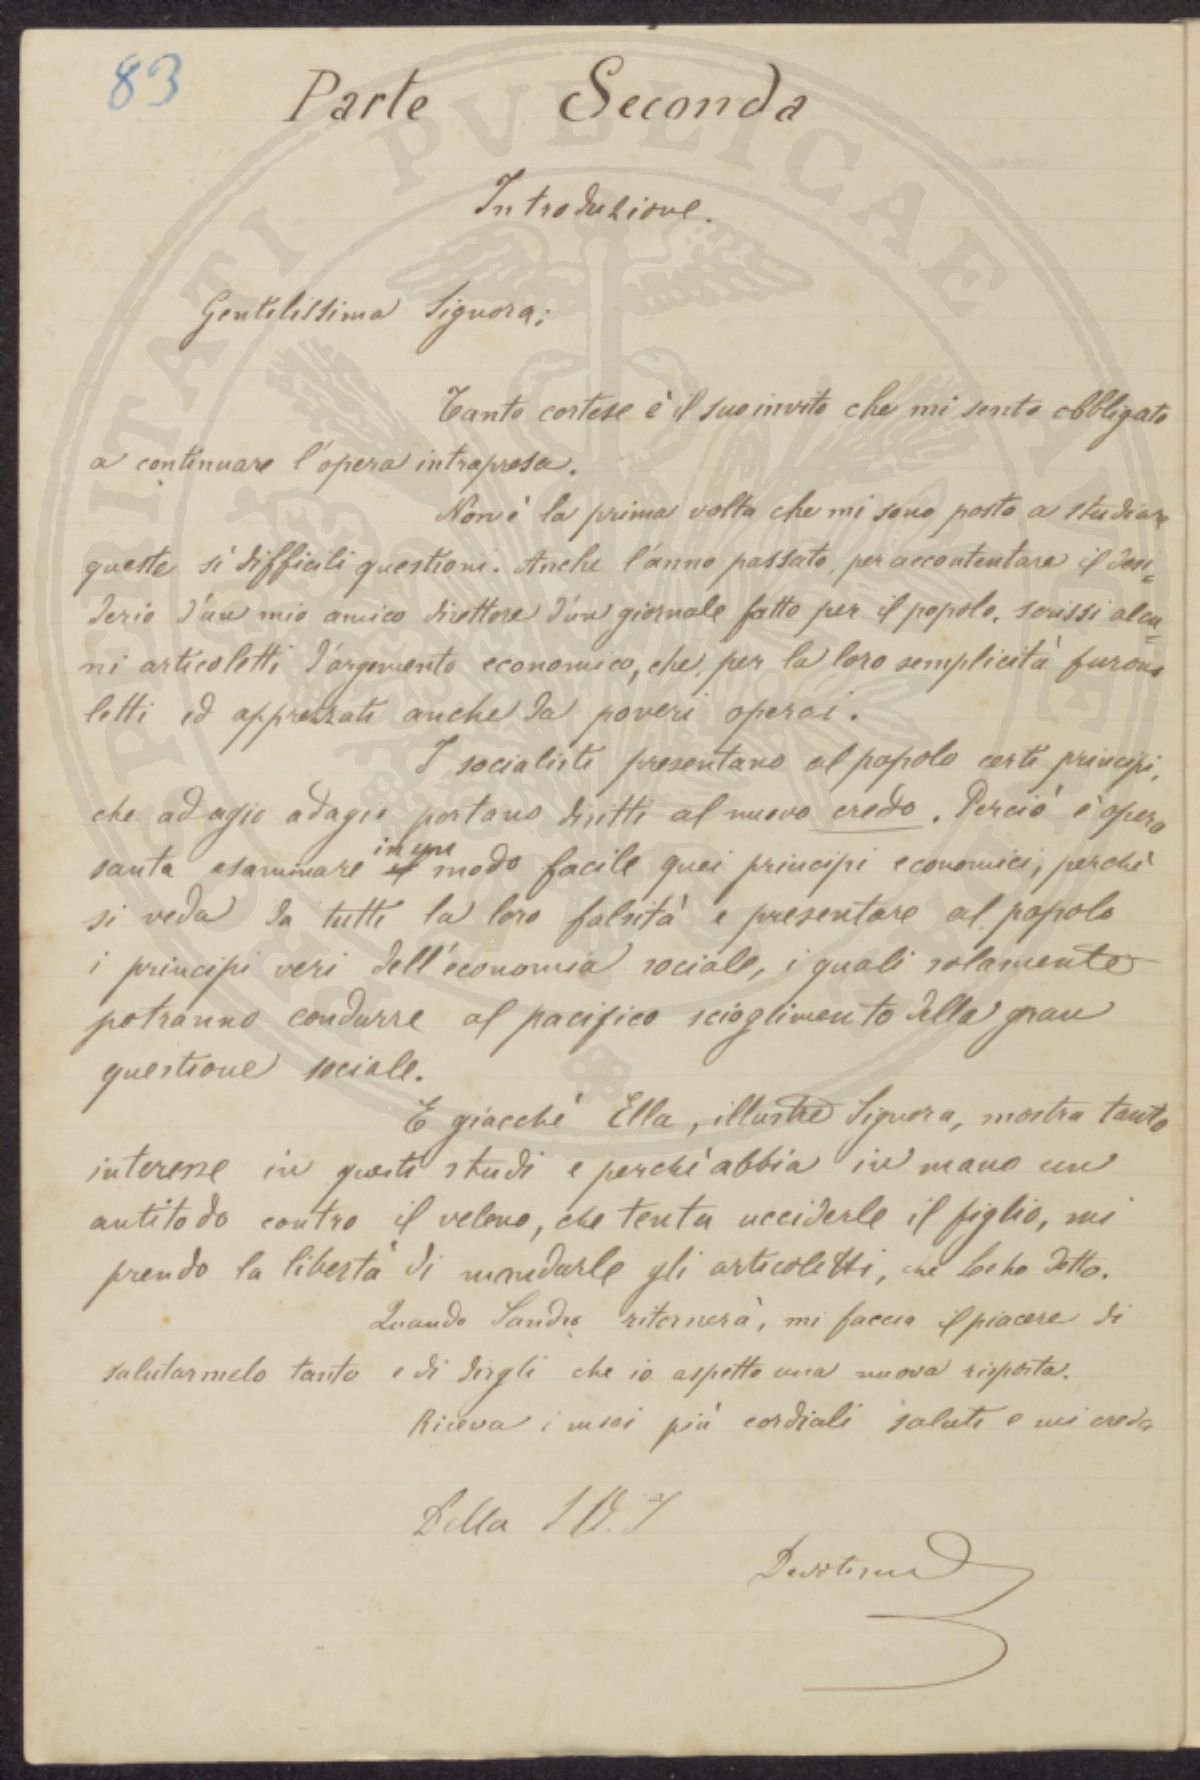 83
Parte Seconda
Introduzione.
Gentilissima Signora;
Tanto cortese è il suo invito che mi sento obbligato
a continuare l'opera intrapresa.
Non è la prima volta che mi sono posto a studiare
queste sì difficili questioni. Anche l'anno passato, per accontentare il desi=
derio d'un mio amico direttore d'un giornale fatto per il popolo, scrissi alcu=
ni articoletti d'argomento economico, che, per la loro semplicità furono
letti ed apprezzati anche da poveri operai.
I socialisti presentano al popolo certi principi,
che adagio adagio portano diritti al nuovo credo. Perciò è opera
santa esaminare in un modo facile quei principi economici, perchè
si veda da tutti la loro falsità e presentare al popolo
i principi veri dell'economia sociale, i quali solamente
potranno condurre al pacifico scioglimento della gran
questione sociale.
E giacchè Ella, illustre Signora, mostra tanto
interesse in questi studi e perchè abbia in mano un
antitodo contro il veleno, che tenta ucciderle il figlio, mi
prendo la libertà di mandarle gli articoletti, che Le ho detto.
Quando Sandro ritornerà, mi faccia il piacere di
salutarmelo tanto e di dirgli che io aspetto una nuova risposta.
Riceva i miei più cordiali saluti e mi creda
Della S. V.
PROSPERITATI PVBLICAE AVGENDAE